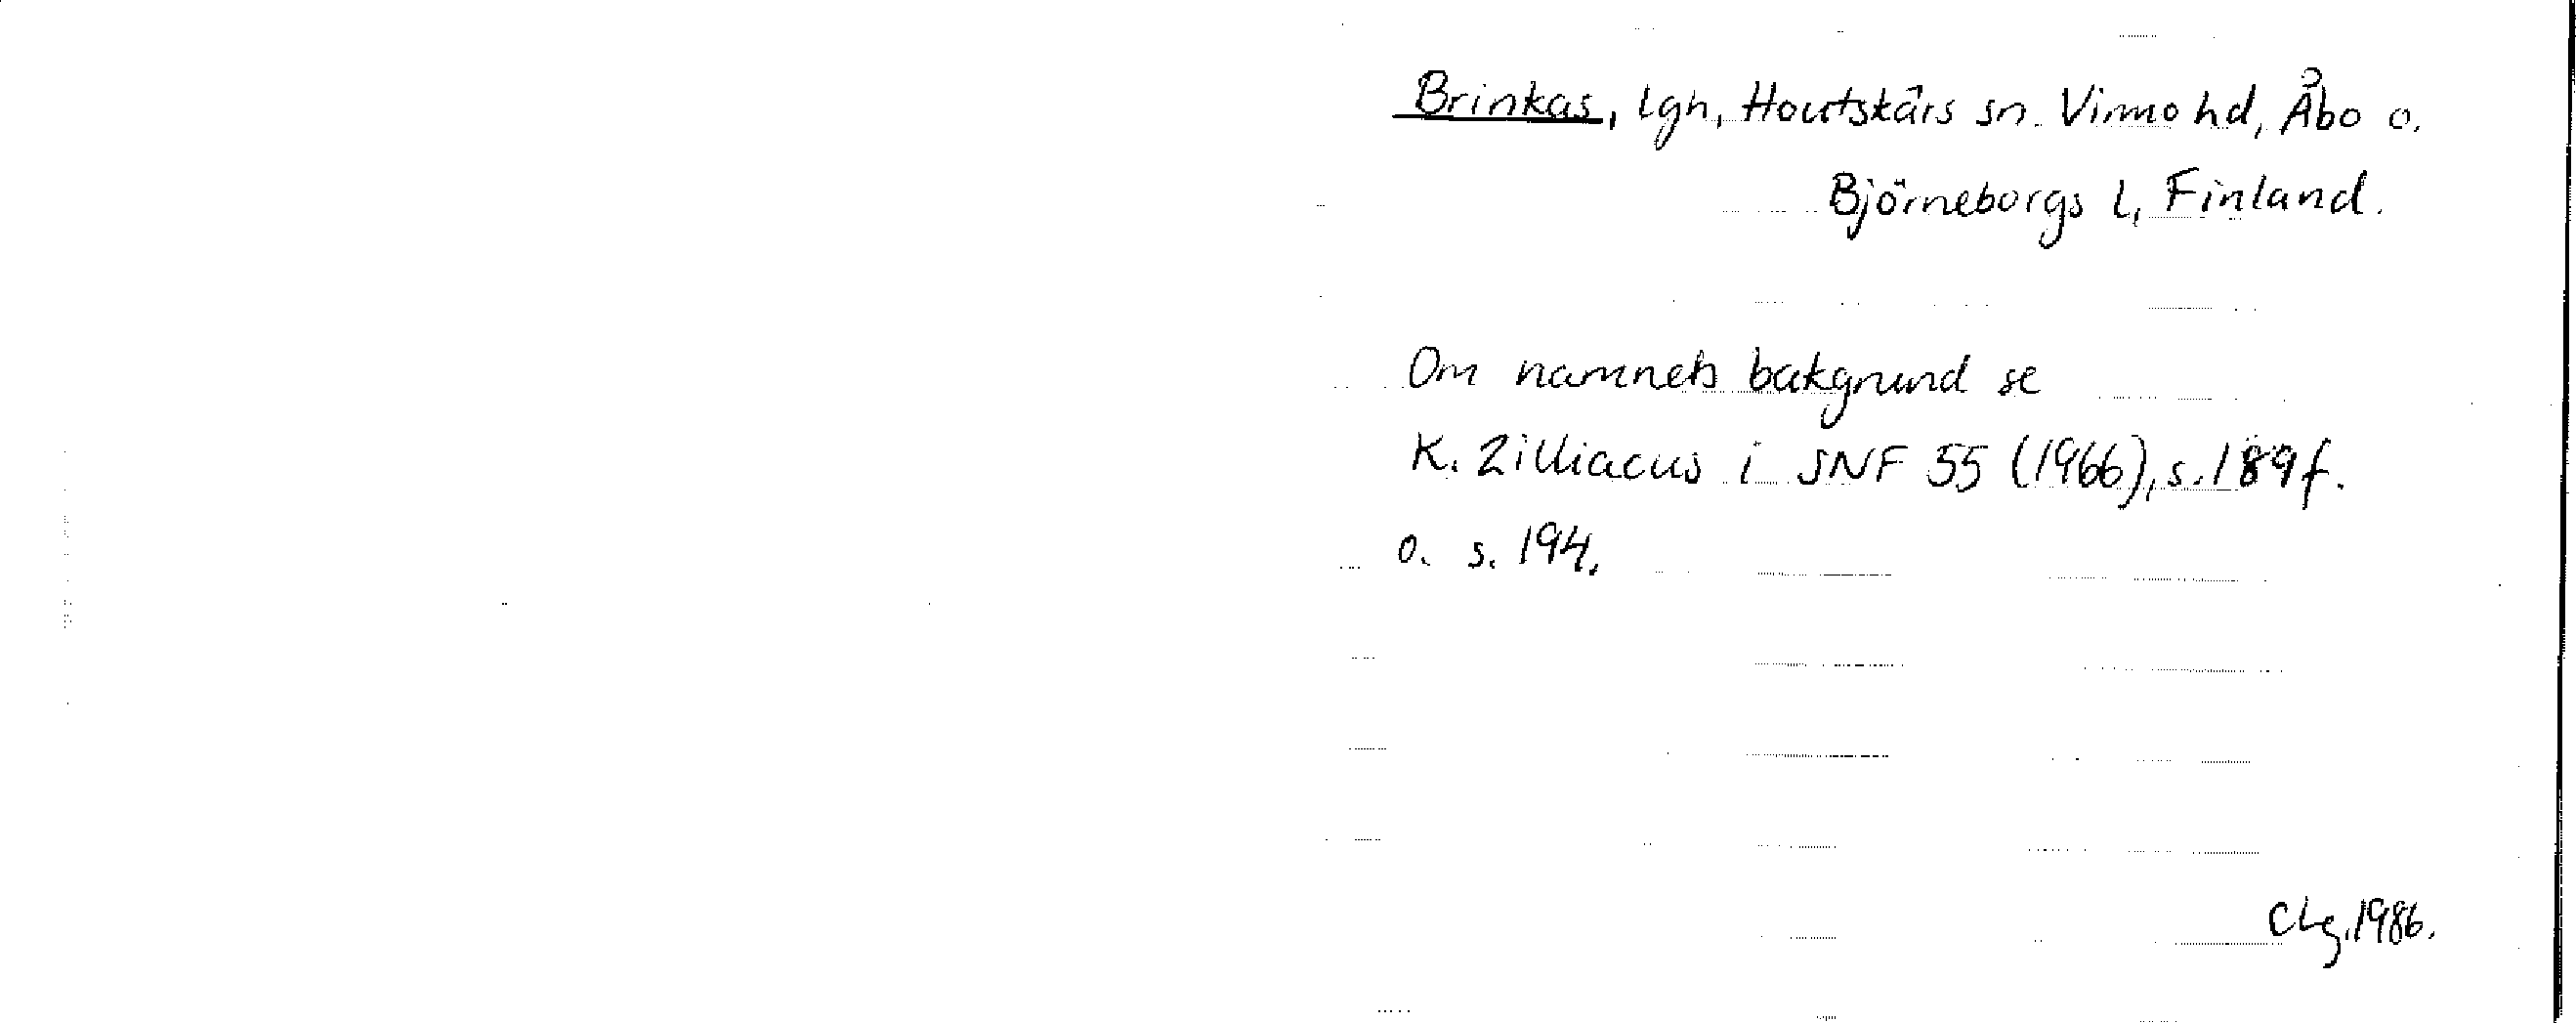 Brinkas, lgh, Houtskärs sn. Virmo hd, Åbo o.
Björneborgs l, Finland.
Om namnets bakgrund se
K. Zilliacus i SNF 55 (1966), s. 189 f.
o. s. 194.
CLg. 1986.